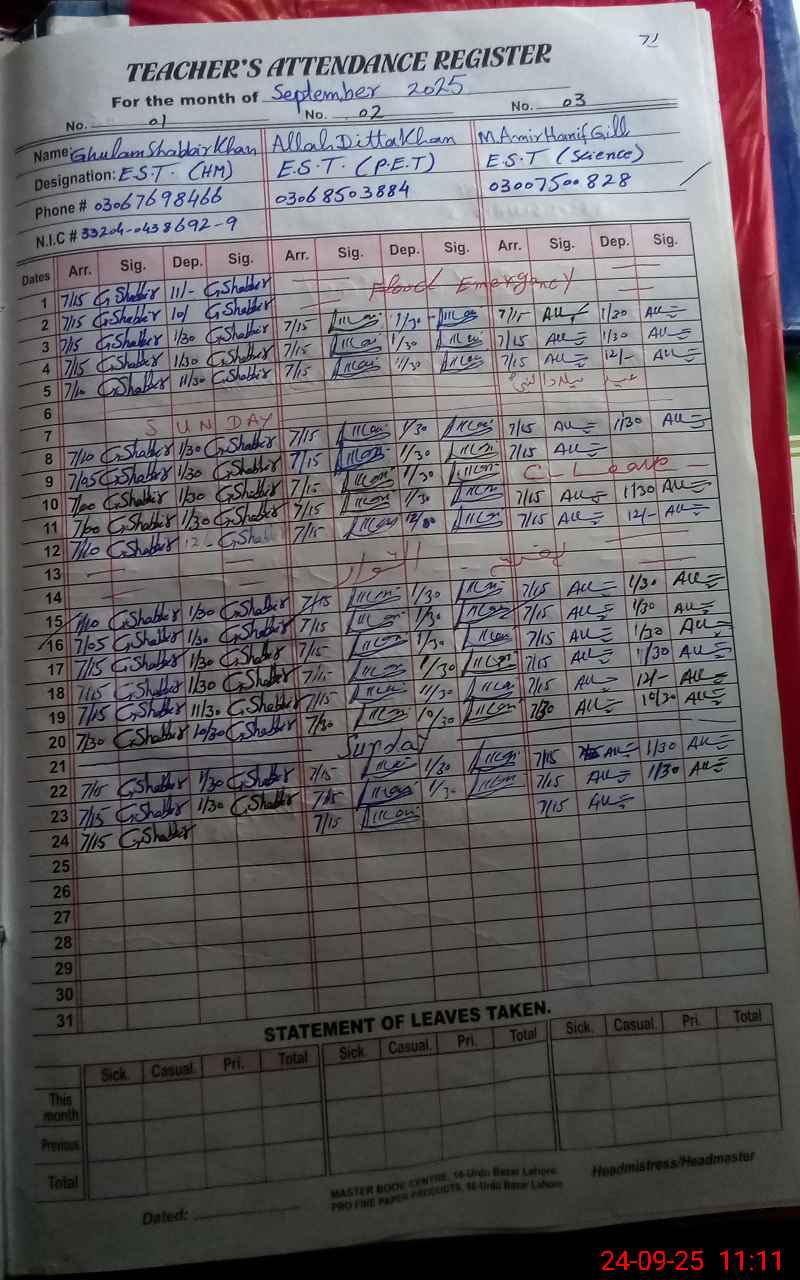 71
TEACHER'S ATTENDANCE REGISTER
For the month of September 2025
No. 01 No. 02 No. 03
Name: Ghulam Shabbir Khan Allah Ditta Khan M Amir Hanif Gill
Designation: E.S.T. (HM) E.S.T (P.E.T) E.S.T (Science)
Phone # 03067698466 03068503884 03007500828
N.I.C # 33204-0438692-9
Dates Arr. Sig. Dep. Sig. Arr. Sig. Dep. Sig. Arr. Sig. Dep. Sig.
1 7/15 G.Shabbir 11/- G.Shabbir Flood Emergency
2 7/15 G.Shabbir 10/ G.Shabbir
3 7/15 G.Shabbir 1/30 G.Shabbir 7/15 1/30 7/15 1/30
4 7/15 G.Shabbir 1/30 G.Shabbir 7/15 1/30 7/15 1/30
5 7/10 G.Shabbir 11/30 G.Shabbir 7/15 7/15 12/-
6 عید میلاد النبیؐ
7 SUNDAY
8 7/10 G.Shabbir 1/30 G.Shabbir 7/15 1/30 7/15 1/30
9 7/05 G.Shabbir 1/30 G.Shabbir 7/15 1/30 7/15
10 7/00 G.Shabbir 1/30 G.Shabbir 7/15 1/30 C L Leave
11 7/00 G.Shabbir 1/30 G.Shabbir 7/15 1/30 7/15 1/30
12 7/10 G.Shabbir 12 - G.Shabbir 7/15 12/00 7/15 12/-
13
14 اتوار
15 7/10 G.Shabbir 1/30 G.Shabbir 7/15 1/30 7/15 1/30
16 7/05 G.Shabbir 1/30 G.Shabbir 7/15 1/30 7/15 1/30
17 7/15 G.Shabbir 1/30 G.Shabbir 7/15 1/30 7/15 1/30
18 7/15 G.Shabbir 1/30 G.Shabbir 7/15 1/30 7/15 1/30
19 7/15 G.Shabbir 11/30 G.Shabbir 7/15 11/30 7/15 12/-
20 7/30 G.Shabbir 10/30 G.Shabbir 7/30 10/30 7/30 10/30
21 Sunday
22 7/15 G.Shabbir 1/30 G.Shabbir 7/15 1/30 7/15 1/30
23 7/15 G.Shabbir 1/30 G.Shabbir 7/15 1/30 7/15 1/30
24 7/15 G.Shabbir 7/15 7/15
25
26
27
28
29
30
31
STATEMENT OF LEAVES TAKEN.
Sick. Casual. Pri. Total Sick. Casual. Pri. Total Sick. Casual. Pri. Total
This month
Previous
Total
Dated:
MASTER BOOK CENTRE, 16-Urdu Bazar Lahore.
PRO FINE PAPER PRODUCTS, 16-Urdu Bazar Lahore
Headmistress/Headmaster
24-09-25 11:11